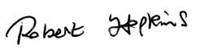 Robert Hopkins